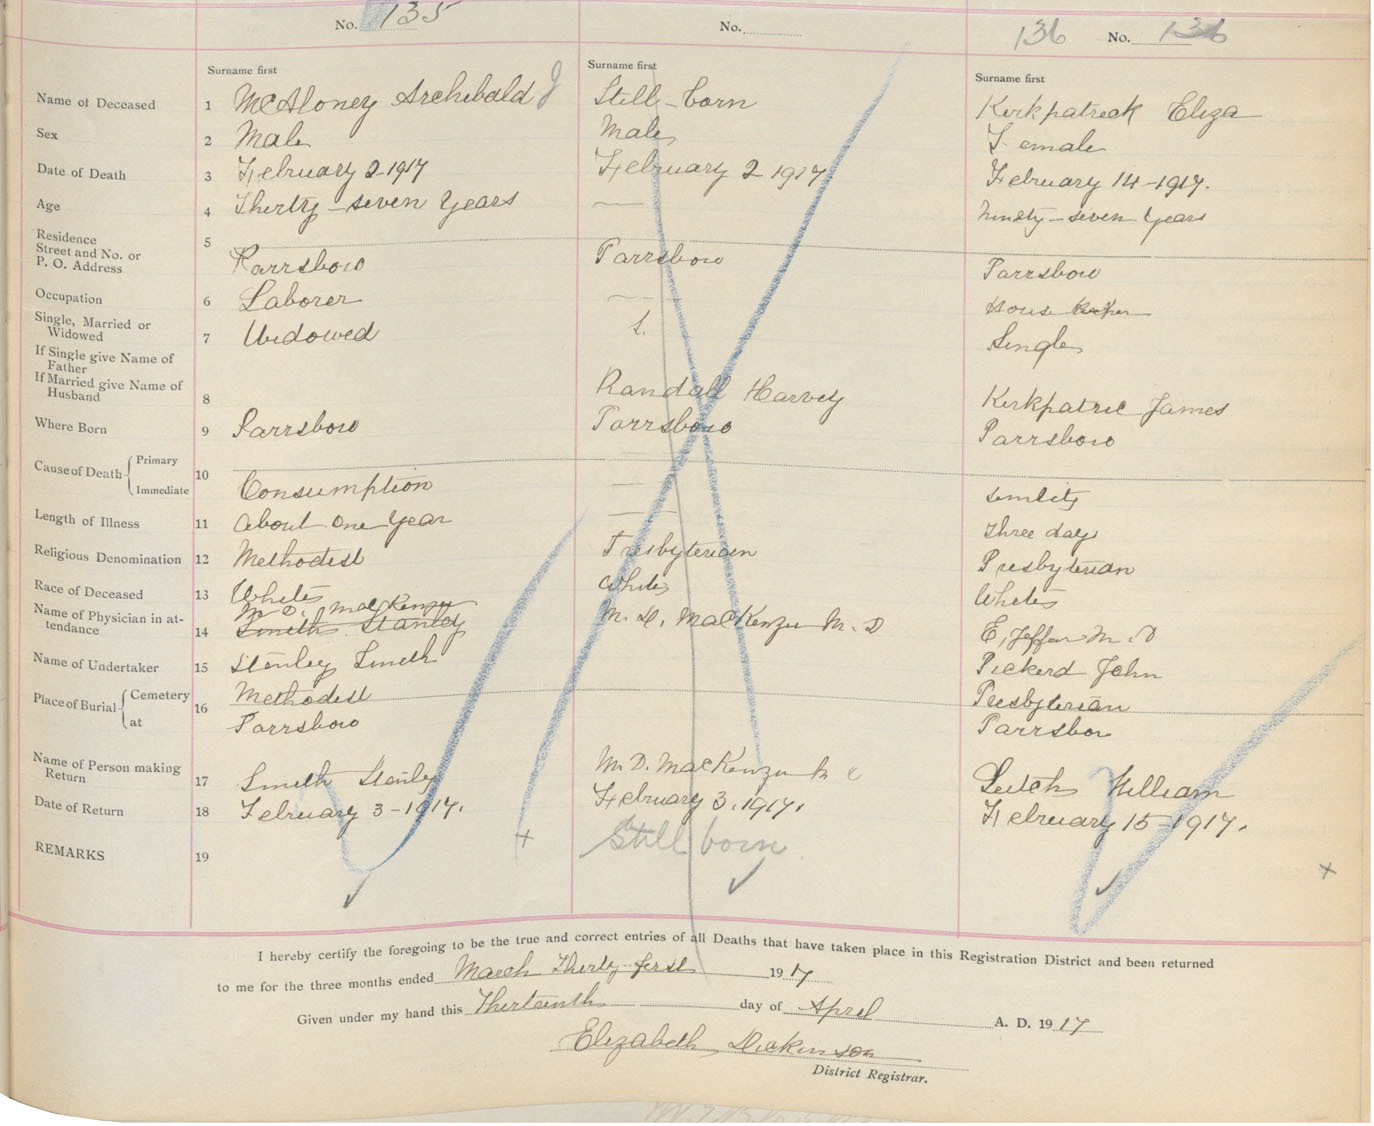 No. 135
No.
136 No. 136
Surname first
Surname first
Surname first
Name of Deceased 1 McAloney Archibald J
Still-born
Kirkpatrick Eliza
Sex 2 Male
Male
Female
Date of Death 3 February 2-1917
February 2 1917
February 14-1917.
Age 4 Thirty-seven Years
—
Ninety-seven Years
Residence
Street and No. or
P. O. Address 5 Parrsboro
Parrsboro
Parrsboro
Occupation 6 Laborer
—
House Keeper
Single, Married or
Widowed 7 Widowed
S.
Single
If Single give Name of
Father
If Married give Name of
Husband 8
Randall Harvey
Kirkpatric James
Where Born 9 Parrsboro
Parrsboro
Parrsboro
Cause of Death Primary
Immediate 10 Consumption
—
senility
Length of Illness 11 about one Year
—
three days
Religious Denomination 12 Methodist
Presbyterian
Presbyterian
Race of Deceased 13 White
White
White
Name of Physician in at-
tendance 14 M. D. MacKenzie
Smith Stanley
M. D. MacKenzie M. D
E, Jeffers M. D
Name of Undertaker 15 Stanley Smith
Pickerd John
Place of Burial Cemetery 16 Methodist
Presbyterian
at Parrsboro
Parrsbor
Name of Person making
Return 17 Smith Stanley
M. D. MacKenzie
William
Date of Return 18 February 3-1917.
February 3. 1917.
February 15-1917.
REMARKS 19
Still born
I hereby certify the foregoing to be the true and correct entries of all Deaths that have taken place in this Registration District and been returned
to me for the three months ended March Thirty-first 1917
Given under my hand this Thirteenth day of April A. D. 1917
Elizabeth Dickinson
District Registrar.